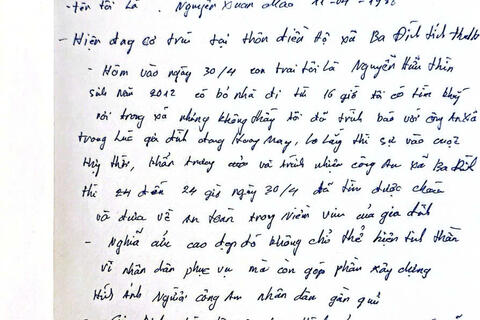 - Tên tôi là : Nguyễn Xuân
- Hiện đang cư trú tại thôn điền hộ xã Ba Đình tỉnh Thanh
- Hôm vào ngày 30/4 con trai tôi là Nguyễn Hữu Thìn
sinh năm 2012 có bỏ nhà đi từ 16 giờ tôi có tìm khắp
nơi trong xã nhưng không thấy tôi đã trình báo với công An xã
trong lúc gia đình đang Hoang Mang, lo lắng thì sự vào cuộc
kịp thời, khẩn trương và trách nhiệm công An xã Ba Đình
thì 24 giờ ngày 30/4 đã tìm được cháu
và đưa về An toàn trong niềm vui của gia đình
- Nghĩa cử cao đẹp đó không chỉ thể hiện tinh thần
vì nhân dân phục vụ mà còn góp phần xây dựng
Hình Ảnh Người công An nhân dân gần gũi